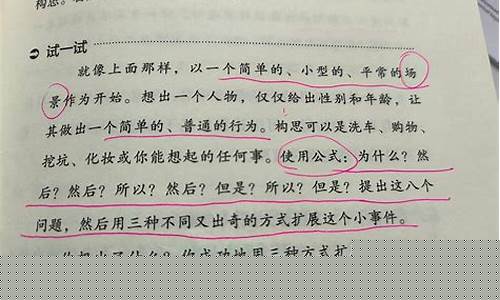 构思。
试一试
就像上面那样，以一个简单的、小型的、平常的场
景作为开始。想出一个人物，仅仅给出性别和年龄，让
其做出一个简单的、普通的行为。构思可以是洗车、购物、
挖坑、化妆或你能想起的任何事。使用公式：为什么？然
后？然后？所以？然后？但是？所以？但是？提出这八个
问题，然后用三种不同又出奇的方式扩展这个小事件。
你想出了什么？你成功地用三种方式扩